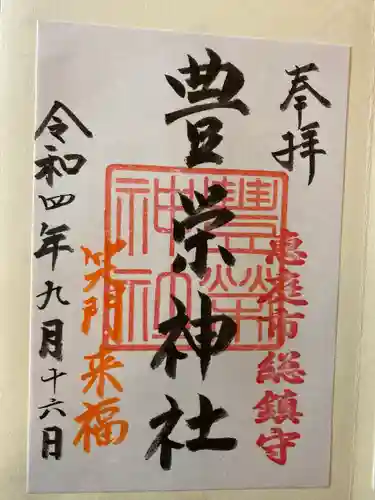 奉拝
恵庭市総鎮守
豊栄神社
豊栄神社
笑門来福
令和四年九月十六日